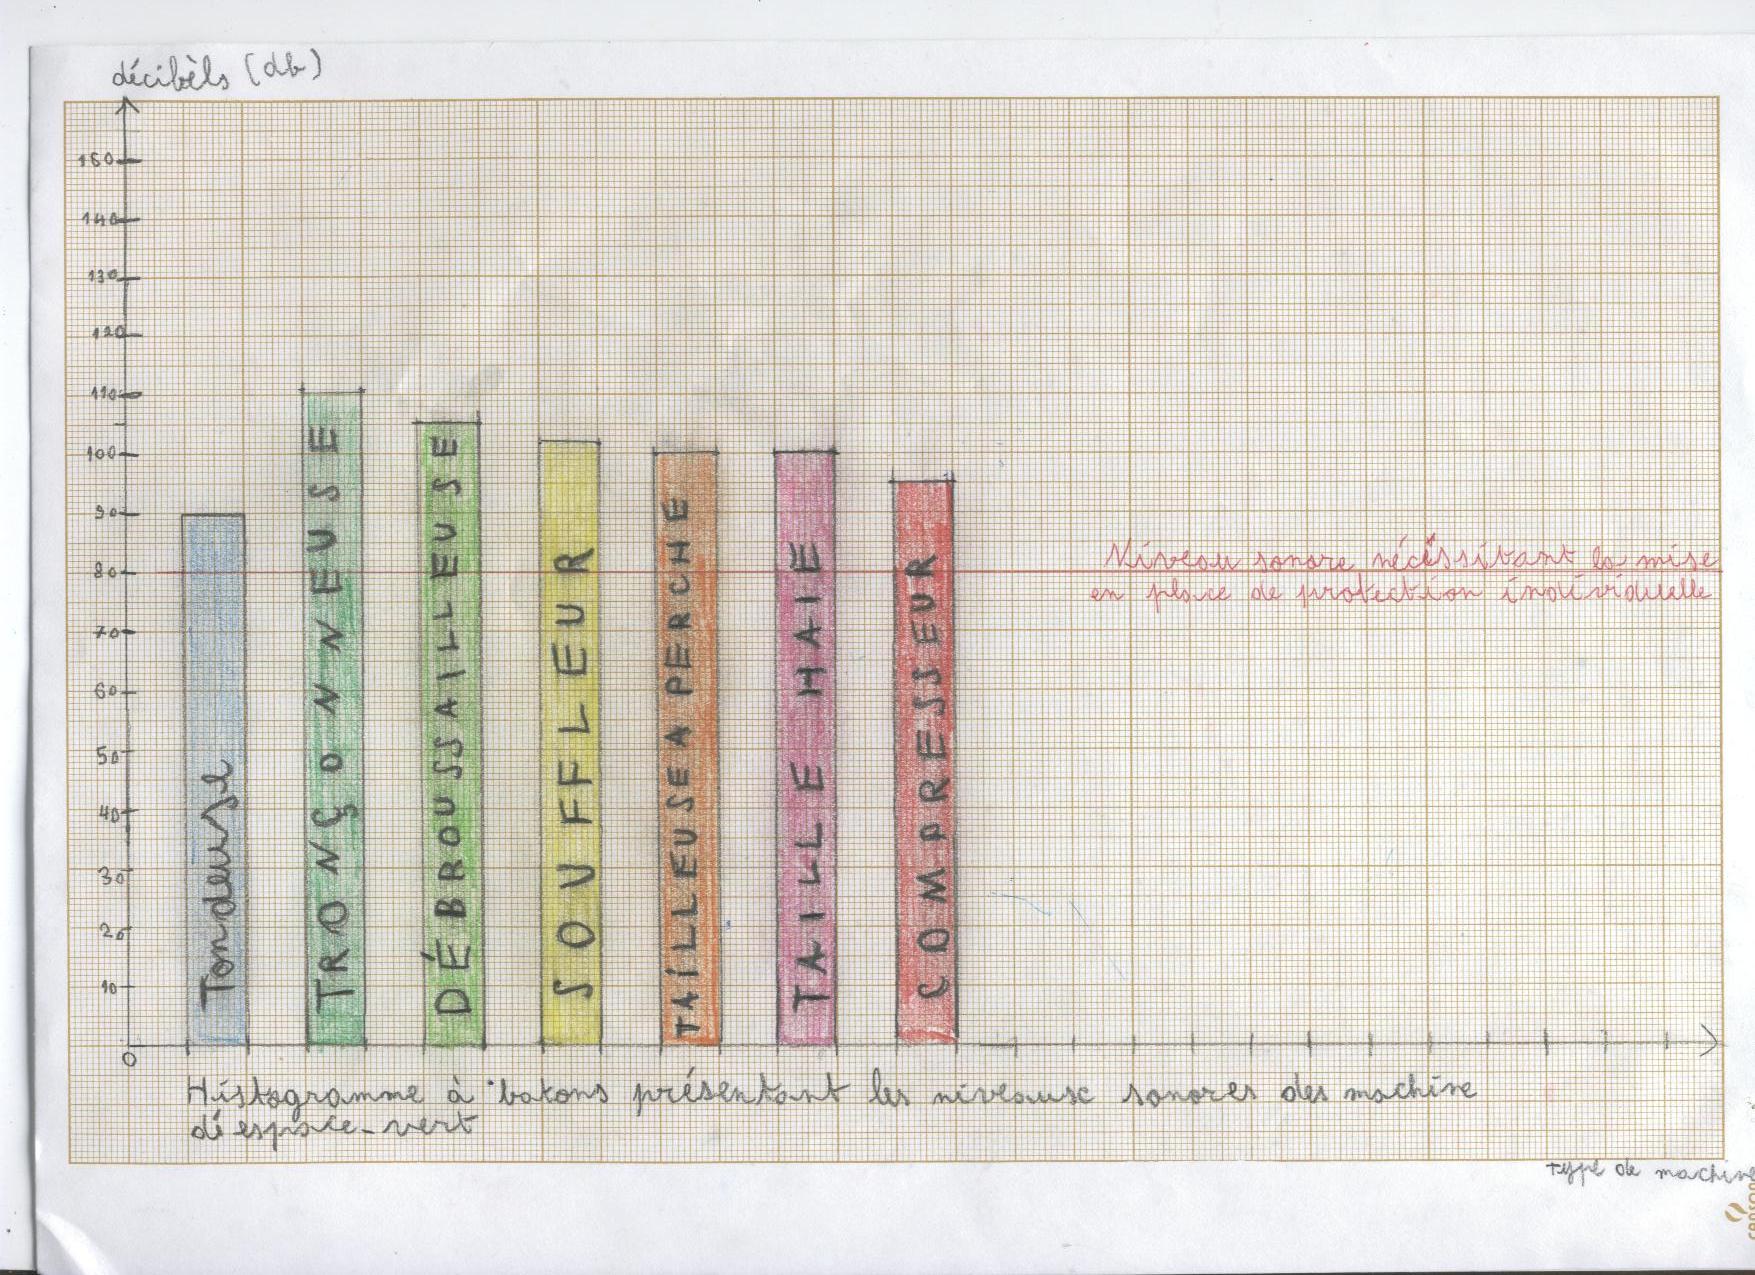 décibèls (db)
160
140
130
120
110
100
90
80
70
60
50
40
30
20
10
0
Tondeuse
TRONÇONNEUSE
DÉBROUSSAILLEUSE
SOUFFLEUR
TAILLEUSE A PERCHE
TAILLE HAIE
COMPRESSEUR
Niveau sonore nécéssitant la mise
en place de protection individuelle
Histogramme à batons présentant les niveaux sonores des machine
d'espace-vert
type de machine
canson